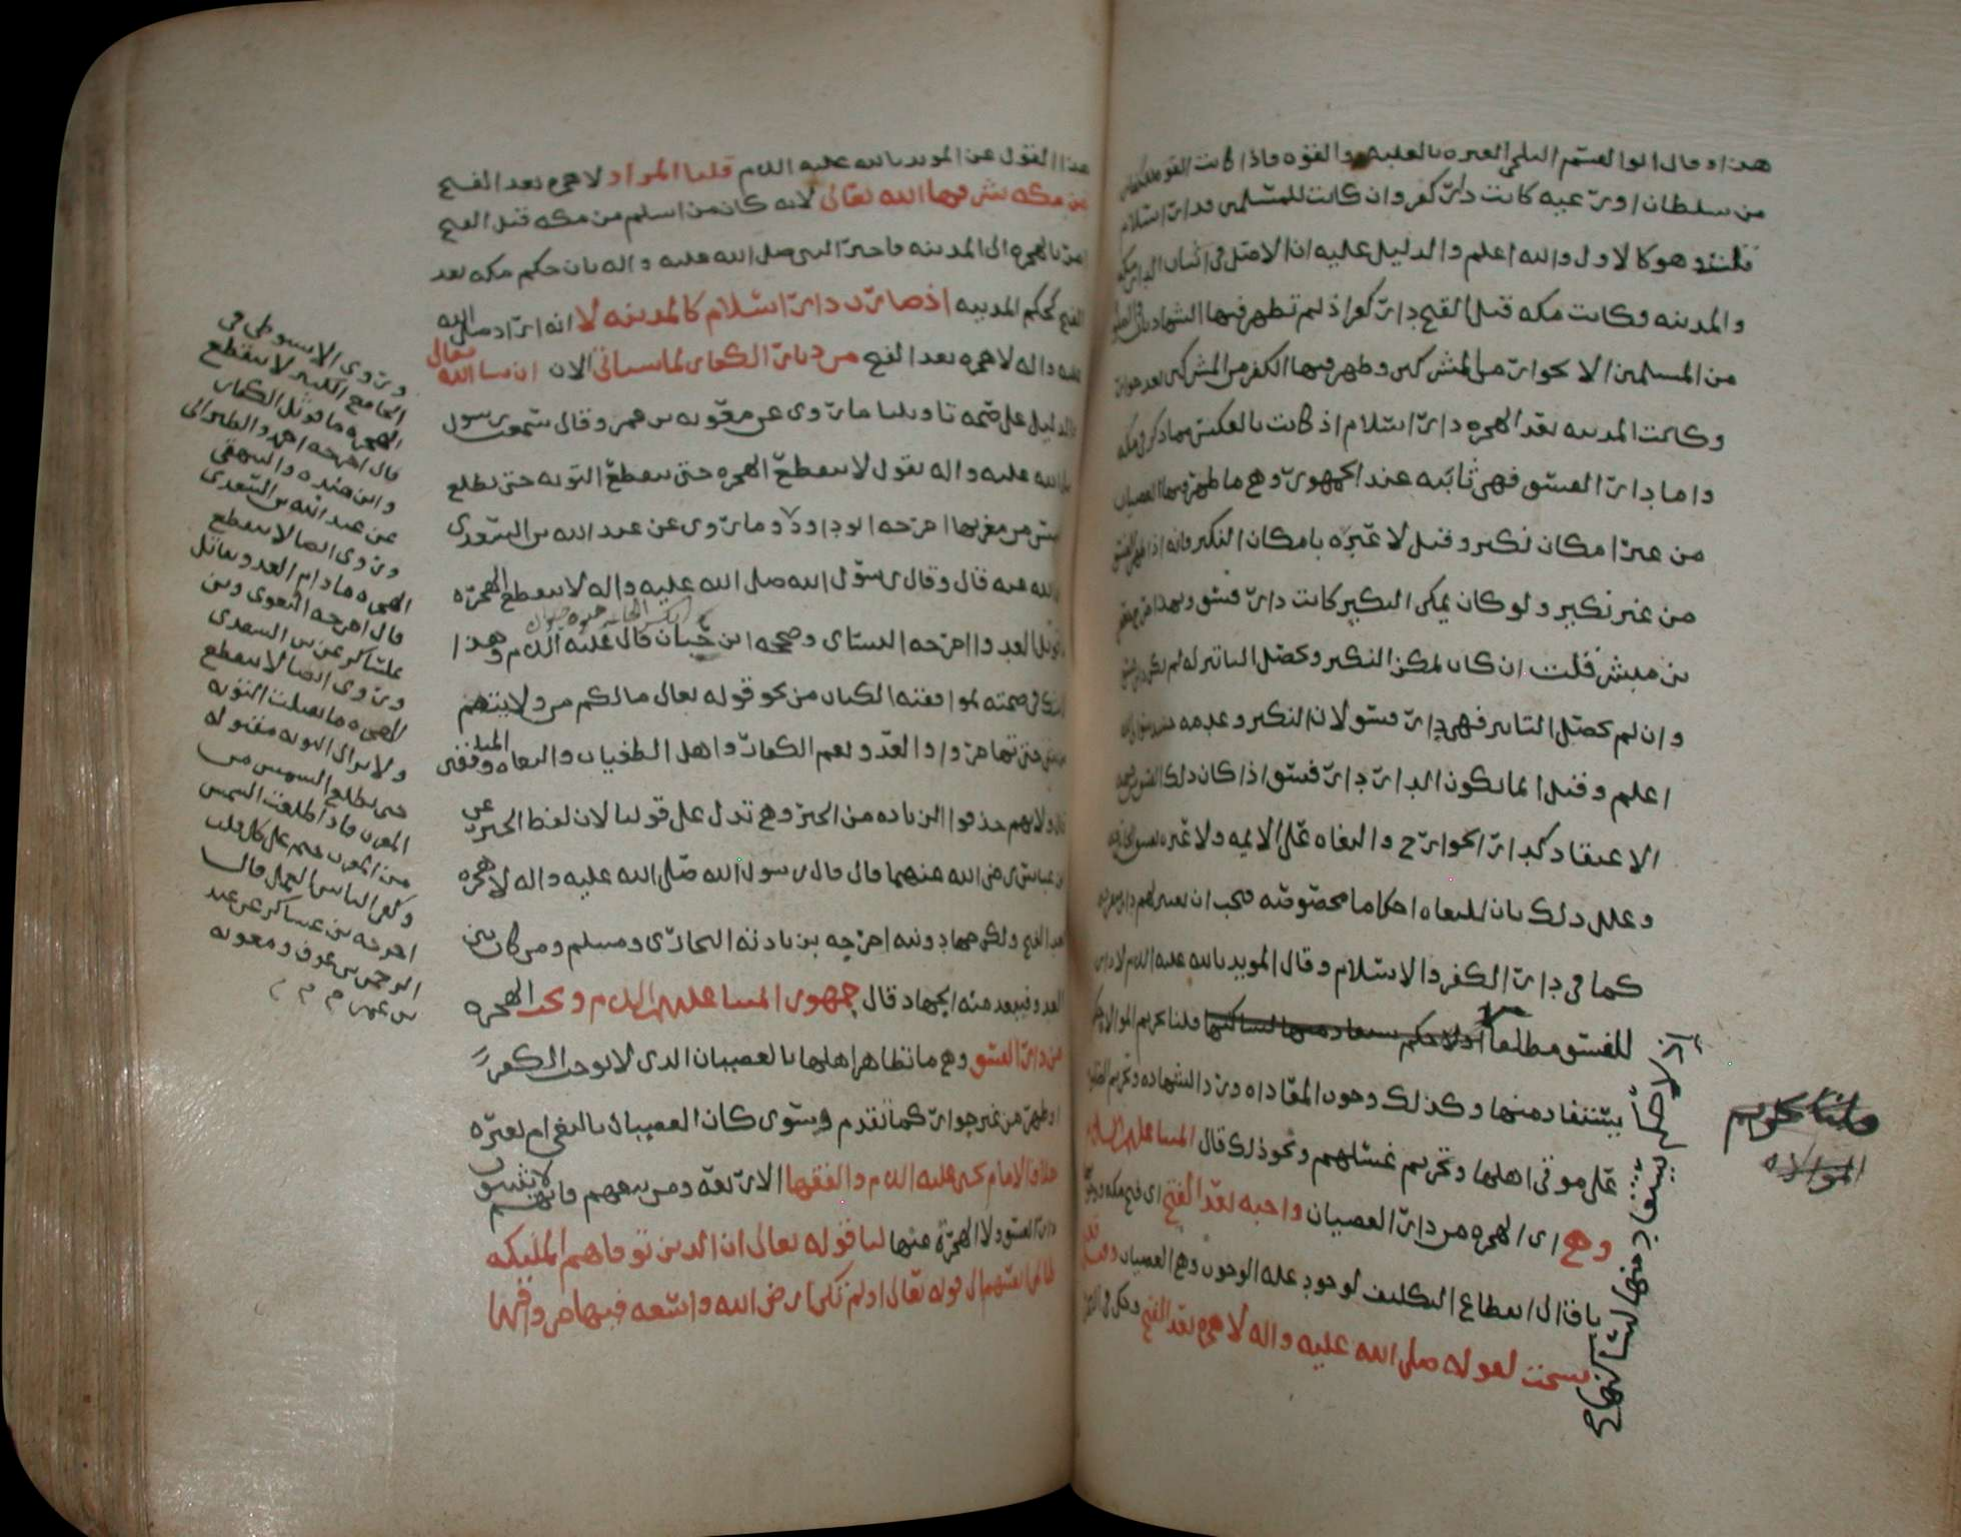 هذا وقال ابو القسم البلخي العبره بالغلبه والقوه فاذا كانت القوه للكفار
من سلطان او رعيه كانت دار كفر وان كانت للمسلمين فدار اسلام
قلت وهو كالاول والله اعلم والدليل عليه ان الاصل في اثبات الدارين مكه
والمدينه فكانت مكه قبل الفتح دار كفر اذ لم تظهر فيها الشهادتان
من المسلمين الا بجوار من المشركين وظهر فيها الكفر من المشركين بغير جوار
وكانت المدينه بعد الهجره دار اسلام اذ كانت بالعكس مما ذكر في مكه
واما دار الفسق فهي ثابته عند الجمهور وهي ما ظهر فيها العصيان
من غير امكان نكير وقيل لا عبره بامكان النكير فانه اذا ظهر الفسق
من غير نكير ولو كان يمكن النكير كانت دار فسق وبهذا
بن مبشر قلت ان كان يمكن النكير وحصل التاثير له لم يكن دار فسق
وان لم يحصل التاثير فهي دار فسق لان النكير وعدمه
اعلم وقيل انما يكون الدار دار فسق اذا كان ذلك الفسق من جهه
الاعتقاد كدار الخوارج والبغاه على الايمه ولا عبره بفسق الجارحه
وعلل ذلك بان للبغاه احكاما مخصوصه فيجب ان يعتبر لهم دار
كما في دار الكفر والاسلام وقال المويد بالله عليه السلام لا دار
للفسق مطلقا اذ لا حكم يستفاد منها لساكنها قلنا تحريم الموالاه حكم
يستفاد منها وكذلك وجوب المعاداه ورد الشهاده وتحريم الصلوه
على موتى اهلها وتحريم غسلهم ونحو ذلك قال ايمتنا عليهم السلام
وهي اى الهجره من دار العصيان واجبه بعد الفتح اى فتح مكه
باق الى انقطاع التكليف لوجود عله الوجوب وهي العصيان وقيل قد
نسخت لقوله صلى الله عليه واله لا هجره بعد الفتح وحكى في
اذ لا حكم يستفاد منها لساكنها صح
قلنا تحريم
الموالاه
هذا القول عن المويد بالله عليه السلام قلنا المراد لا هجره بعد الفتح
من مكه شرفها الله تعالى لانه كان من اسلم من مكه قبل الفتح
امر بالهجره الى المدينه فاخبر النبي صلى الله عليه واله بان حكم مكه بعد
الفتح كحكم المدينه اذ صارت دار اسلام كالمدينه لا انه اراد صلى الله
عليه واله لا هجره بعد الفتح من ديار الكفار لما سياتي الان ان شا الله تعالى
والدليل على صحه تاويلنا ما روى عن معويه بن عمر وقال سمعت رسول
صلى الله عليه واله يقول لا ينقطع الهجره حتى ينقطع التوبه حتى تطلع
الشمس من مغربها اخرجه ابو داود وما روى عن عبد الله بن السعدي
رضي الله عنه قال وقال رسول الله صلى الله عليه واله لا ينقطع الهجره
ما قوتل العدو اخرجه النسائى وصححه ابن حبان قال عليه السلام وهذا
لا شك في صحته لموافقته الكتاب من نحو قوله تعالى ما لكم من ولايتهم
من شي حتى يهاجروا والعدو يعم الكفار واهل الطغيان والبغاه وفي المتفق
قال ولانهم حذفوا الزياده من الخبر وهي تدل على قولنا لان لفظ الخبر عن
ابن عباس رضي الله عنهما قال قال رسول الله صلى الله عليه واله لا هجره
بعد الفتح ولكن جهاد ونيه اخرجه بزيادته البخاري ومسلم ومن كان بين
العدو فيبعد منه الجهاد قال جمهور ايمتنا عليهم السلام وتجب الهجره
من دار الفسق وهي ما تظاهر اهلها بالعصيان الذى لا يوجب الكفر
او ظهر من غير جوار كما تقدم وسوى كان العصيان بالبغي ام بغيره
خلافا لامام يحيى عليه السلام والفقها الاربعه ومن تبعهم فانهم لا يثبتون
دار الفسق ولا الهجره عنها لنا قوله تعالى ان الذين توفاهم المليكه
ظالمي انفسهم الى قوله تعالى اولم تكن ارض الله واسعه فتهاجروا فيها
وروى الاسيوطي في
الجامع الكبير لا ينقطع
الهجره ما قوتل الكفار
قال اخرجه احمد والطبراني
وابن منده والبيهقي
عن عبد الله بن السعدي
وروى ايضا لا ينقطع
الهجره ما دام العدو يقاتل
قال اخرجه البغوى وبن
عساكر عن بن السعدى
وروى ايضا لا ينقطع
الهجره ما تقبلت التوبه
ولا يزال التوبه مقبوله
حتى تطلع الشمس من
المغرب فاذا طلعت الشمس
من المغرب ختم على كل قلب
وكفى الناس العمل قال
اخرجه بن عساكر عن عبد
الرحمن بن عوف ومعويه
بن عمر